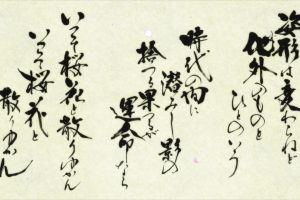 姿形は変わらねど
化外のものと
ひとのいう
時代の向に
潜みし影の
捨つる果つるが
運命なら
いつそ桜花と散りゆかん
いつそ桜花と
散りゆかん